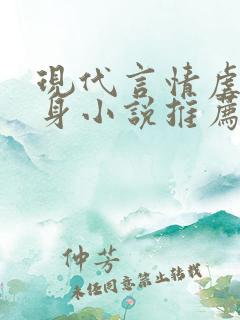 現代言情虐
身小說推薦
仲芳
未經同意禁止轉載